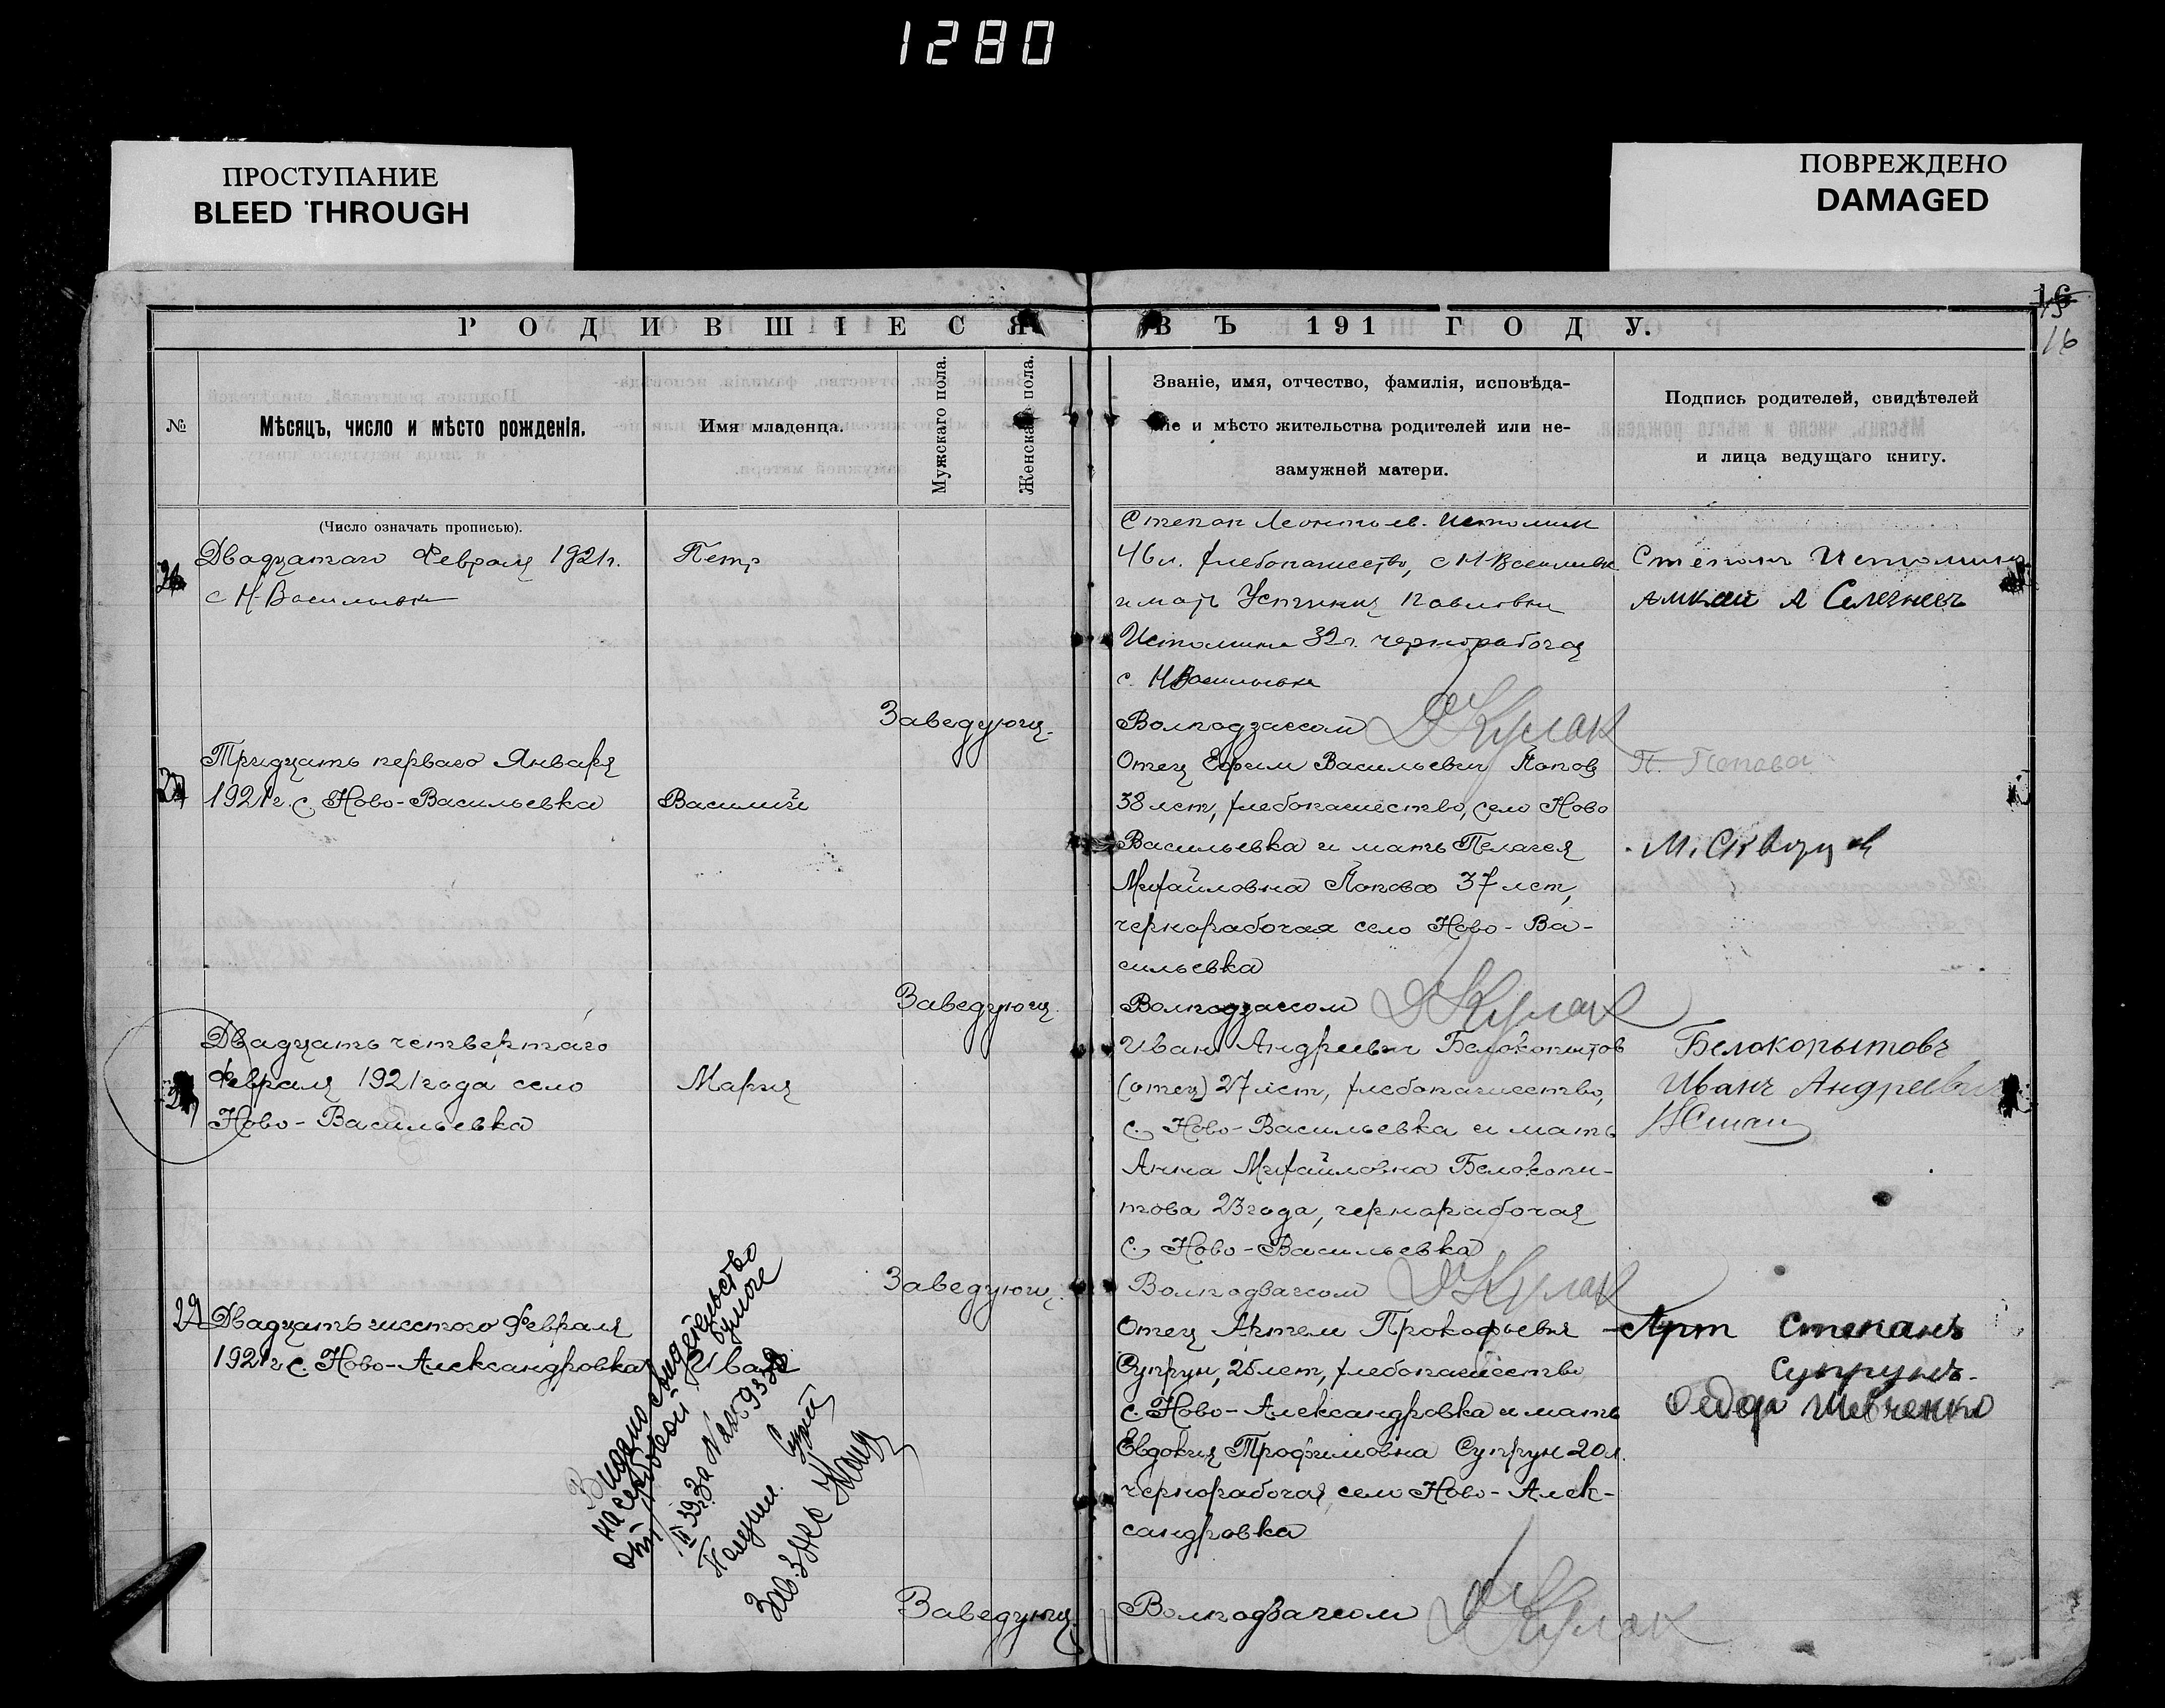 1280
ПРОСТУПАНИЕ
BLEED THROUGH
ПОВРЕЖДЕНО
DAMAGED
16
РОДИВШІЕСЯ ВЪ 191 ГОДУ.
№
Мѣсяцъ, число и мѣсто рожденія.
Имя младенца.
Мужскаго пола.
Женскаго пола.
Званіе, имя, отчество, фамилія, исповѣда-
ніе и мѣсто жительства родителей или не-
замужней матери.
Подпись родителей, свидѣтелей
и лица ведущаго книгу.
(Число означать прописью).
26
Двадцатаго Февраля 1921г.
с Н-Васильевка
Петр
Степан Леонтьев. Истомин
46 л. хлебопашество, с Н-Васильевка
и мать Устиния Павловна
Истомина 32 г. чернорабочая
с. Н Васильевка
Степанъ Истоминъ
А Селезневъ
Заведующ. Волподзагсом Д Кулак
27
Тридцать перваго Января
1921г. с. Ново-Васильевка
Василий
Отец Ефим Васильевич Попов
38 лет, хлебопашество, село Ново
Васильевка и мать Пелагея
Михайловна Попова 37 лет,
чернорабочая село Ново-Ва-
сильевка
П. Попова
Заведующ. Волподзагсом Д Кулак
Двадцать четвертаго
Февраля 1921 года село
Ново-Васильевка
Мария
Иван Андреевич Белокопытов
(отец) 27 лет, хлебопашество,
с. Ново-Васильевка и мать
Анна Михайловна Белокопы-
това 23 года, чернорабочая
с. Ново-Васильевка
Белокопытовъ
Иванъ Андреевич
Заведующ. Волподзагсом Д Кулак
29
Двадцать шестого Февраля
1921г с. Ново-Александровка
Иван
Отец Артем Прокофьевич
Супрун, 26 лет, хлебопашество
с. Ново-Александровка и мать
Евдокия Трофимовна Супрун 20 л.
чернорабочая, село Ново-Алек-
сандровка
Арт Степанъ
Супрунъ
Федор Шевченко
Видано свидетельство
на гербовой бумаге
Зав. Загс
Заведующ. Волподзагсом Д Кулак